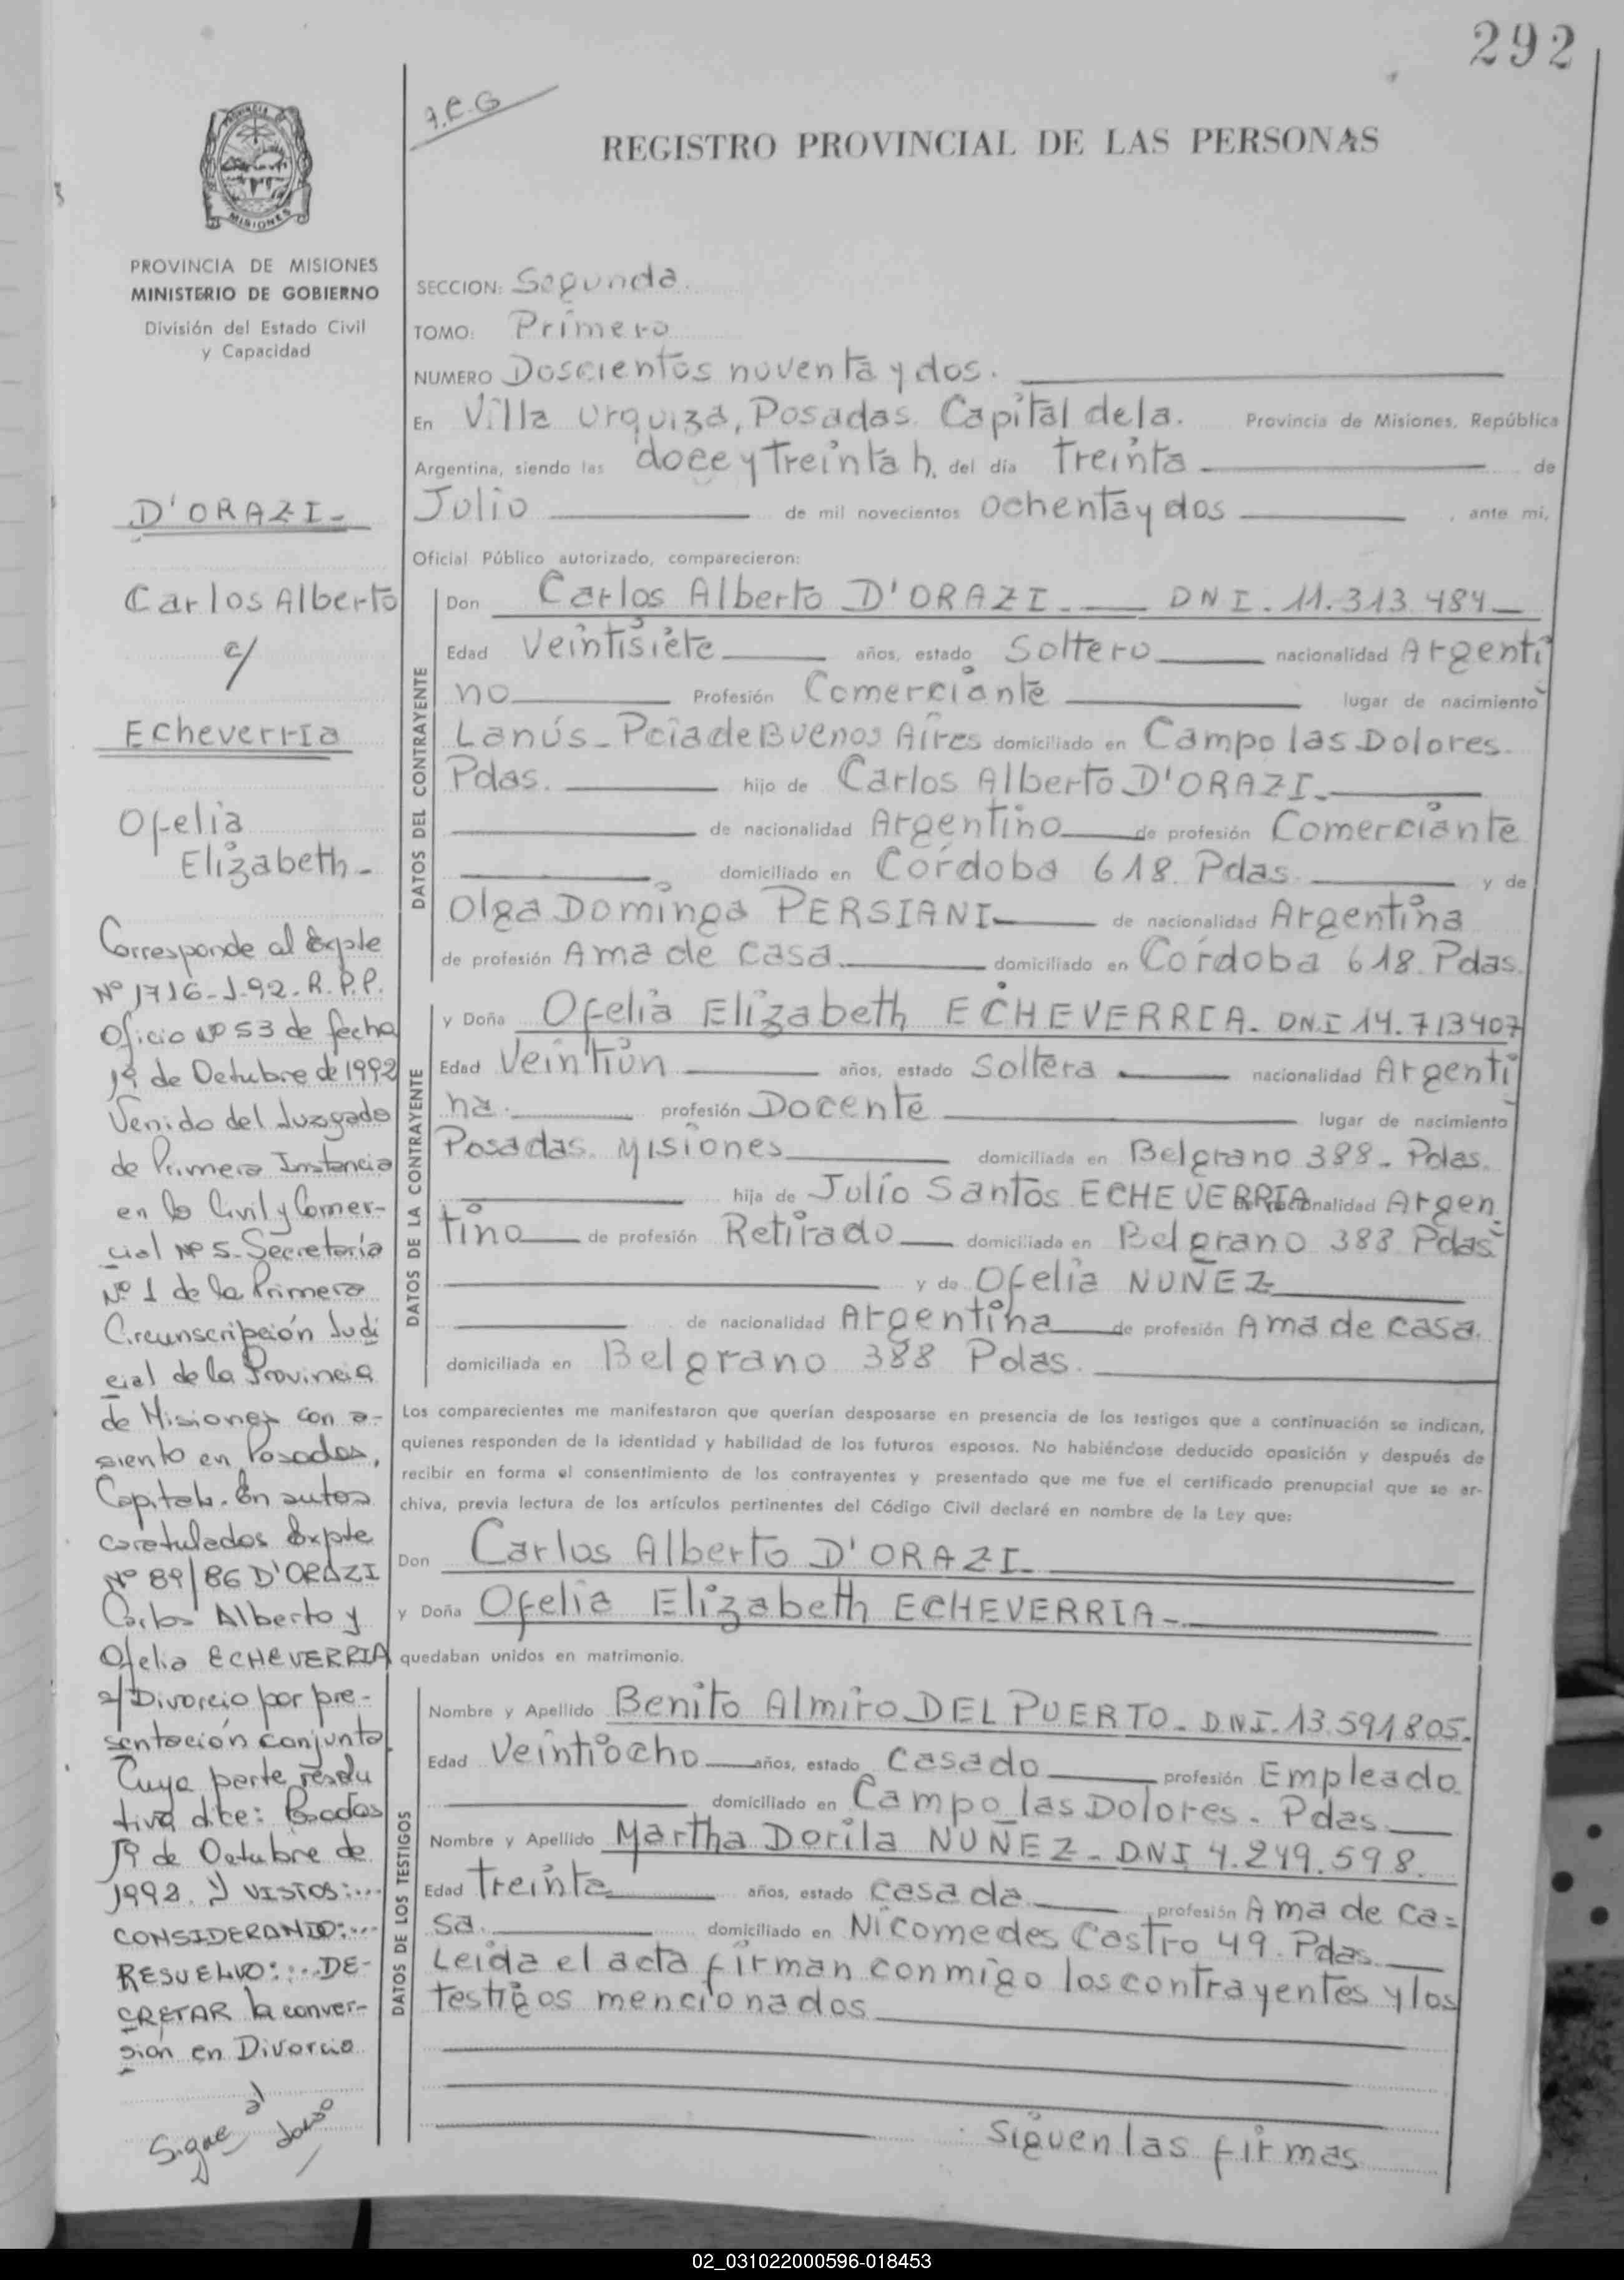 292
A.R.G
REGISTRO PROVINCIAL DE LAS PERSONAS
PROVINCIA
MISIONES
PROVINCIA DE MISIONES
MINISTERIO DE GOBIERNO
División del Estado Civil
y Capacidad
D'ORAZI-
Carlos Alberto
c/
Echeverria
Ofelia
Elizabeth-
Corresponde al Expte
Nº 1716-J-92-R.P.P.
Oficio Nº 53 de fecha
1º de Octubre de 1992
Venido del Juzgado
de Primera Instancia
en lo Civil y Comer-
cial Nº 5-Secretaría
Nº 1 de la Primera
Circunscripción Judi
cial de la Provincia
de Misiones con a-
siento en Posadas,
Capital. En autos
caratulados Expte
Nº 89/86 D'ORAZI
Carlos Alberto y
Ofelia ECHEVERRIA
s/Divorcio por pre-
sentación conjunta.
Cuya parte resolu
tiva dice: Posadas
1º de Octubre de
1992. Y VISTOS:...
CONSIDERANDO:...
RESUELVO:...DE-
CRETAR la conver-
sión en Divorcio
Sigue al dorso
SECCION: Segunda.
TOMO: Primero
NUMERO Doscientos noventa y dos.
En Villa Urquiza, Posadas. Capital de la. Provincia de Misiones, República
Argentina, siendo las doce y treinta h. del día treinta de
Julio de mil novecientos ochenta y dos , ante mi,
Oficial Público autorizado, comparecieron:
DATOS DEL CONTRAYENTE
Don Carlos Alberto D'ORAZI.- DNI. 11.313.484
Edad Veintisiete años, estado Soltero nacionalidad Argenti
no Profesión Comerciante lugar de nacimiento
Lanús-Pcia de Buenos Aires domiciliado en Campo las Dolores.
Pdas. hijo de Carlos Alberto D'ORAZI.
de nacionalidad Argentino de profesión Comerciante
domiciliado en Córdoba 618. Pdas. y de
Olga Dominga PERSIANI de nacionalidad Argentina
de profesión Ama de casa. domiciliado en Córdoba 618. Pdas.
DATOS DE LA CONTRAYENTE
y Doña Ofelia Elizabeth ECHEVERRIA. DNI 14.713407
Edad Veintiún años, estado Soltera nacionalidad Argenti
na. profesión Docente lugar de nacimiento
Posadas. Misiones domiciliada en Belgrano 388- Pdas.
hija de Julio Santos ECHEVERRIA nacionalidad Argen
tino de profesión Retirado domiciliada en Belgrano 388 Pdas
y de Ofelia NUÑEZ
de nacionalidad Argentina de profesión Ama de casa.
domiciliada en Belgrano 388 Pdas.
Los comparecientes me manifestaron que querían desposarse en presencia de los testigos que a continuación se indican,
quienes responden de la identidad y habilidad de los futuros esposos. No habiéndose deducido oposición y después de
recibir en forma el consentimiento de los contrayentes y presentado que me fue el certificado prenupcial que se ar-
chiva, previa lectura de los artículos pertinentes del Código Civil declaré en nombre de la Ley que:
Don Carlos Alberto D'ORAZI
y Doña Ofelia Elizabeth ECHEVERRIA-
quedaban unidos en matrimonio.
DATOS DE LOS TESTIGOS
Nombre y Apellido Benito Almiro DEL PUERTO- DNI. 13.591805.
Edad Veintiocho años, estado Casado profesión Empleado
domiciliado en Campo las Dolores- Pdas.
Nombre y Apellido Martha Dorila NUÑEZ- DNI 4.249.598.
Edad treinta años, estado casada profesión Ama de ca=
sa. domiciliado en Nicomedes Castro 49. Pdas.
Leida el acta firman conmigo los contrayentes y los
testigos mencionados
Siguen las firmas
02_031022000596-018453